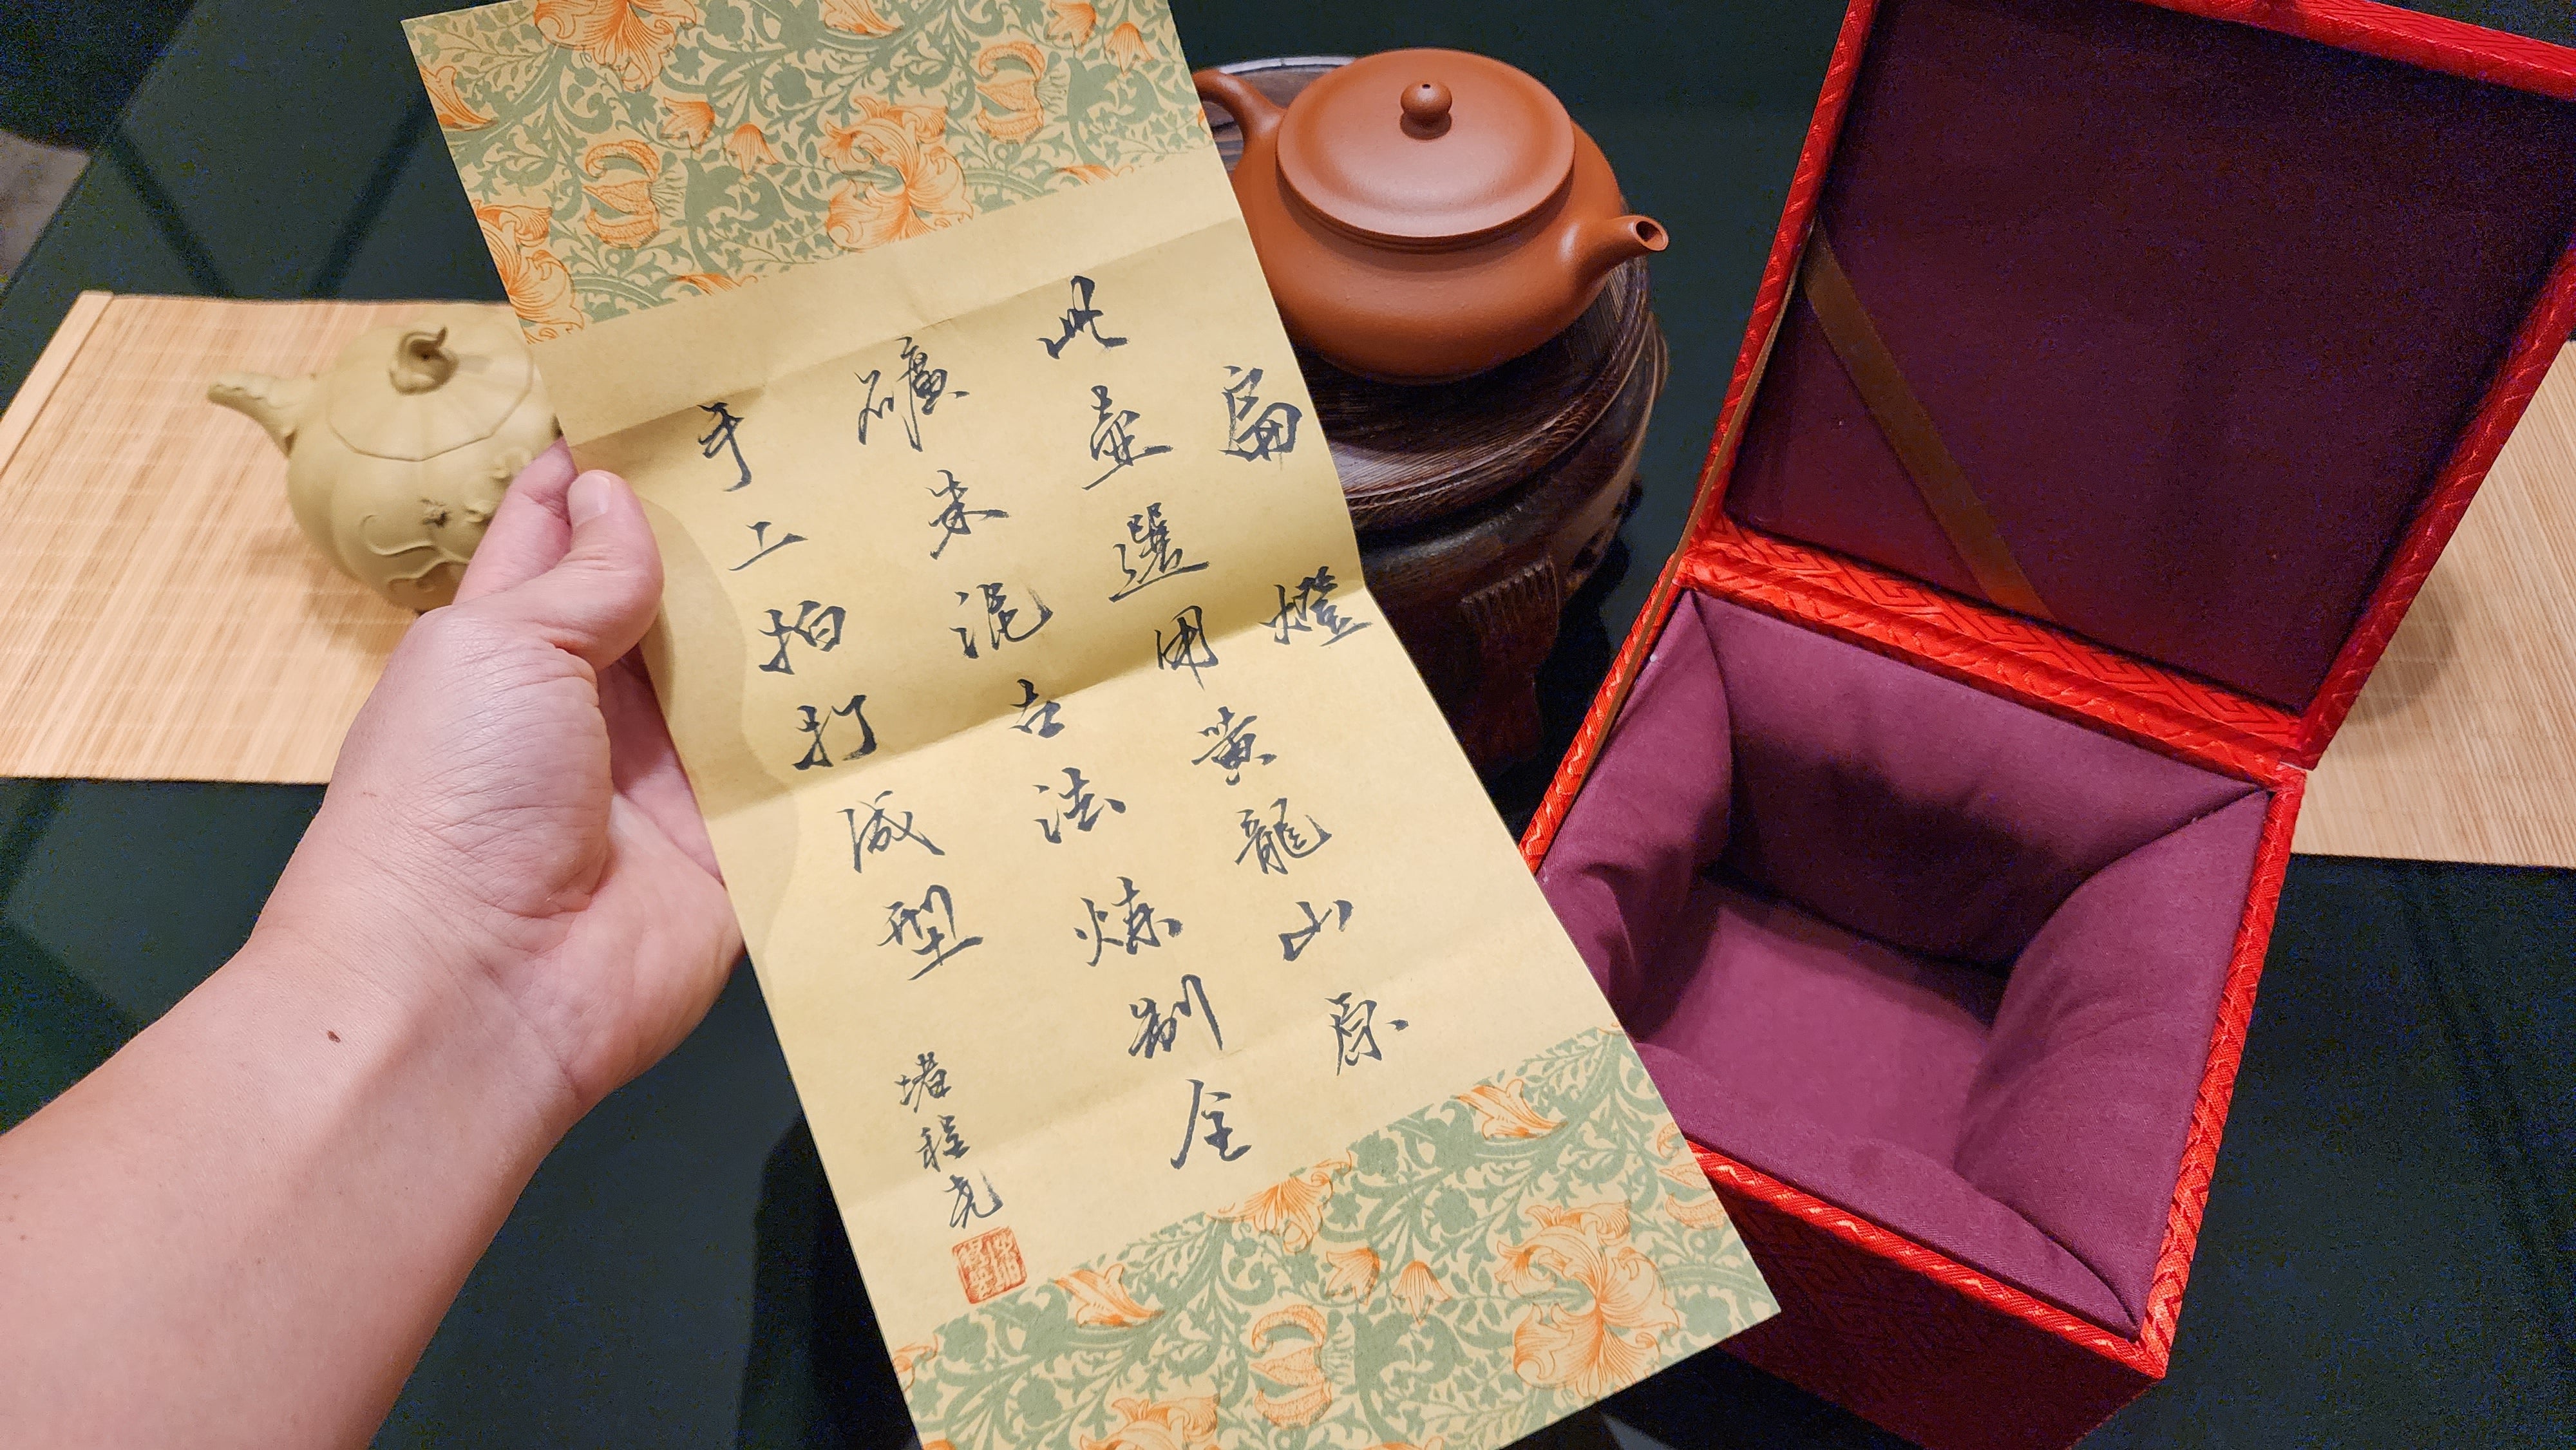 扁燈
此壺選用黃龍山原
礦朱泥古法煉制全
手工拍打成型
堵程尧